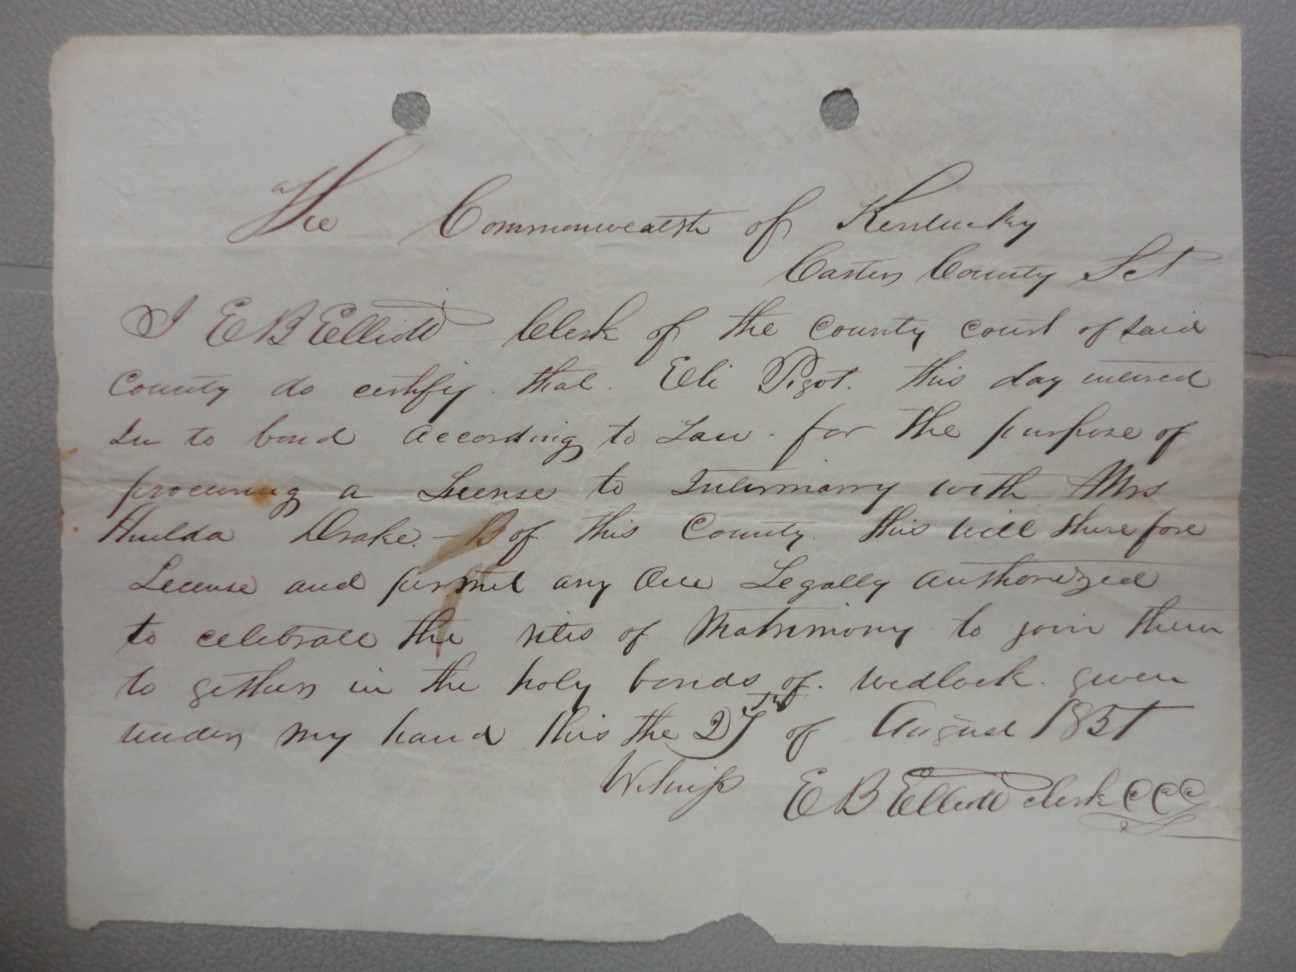 The Commonwealth of Kentucky
Carter County Sct
I E B Elliott Clerk of the county court of said
County do certify that Eli Pigot. this day entered
In to bond according to Law. for the purpose of
procuring a License to Intermarry with Mrs
Hulda Drake. - B of this County. this will therefore
License and permit any One Legally authorized
to celebrate the rites of Matrimony to join them
to gether in the holy bonds of. wedlock. given
under my hand this the 27th of August 1851
Witness E B Elliott clerk CCC